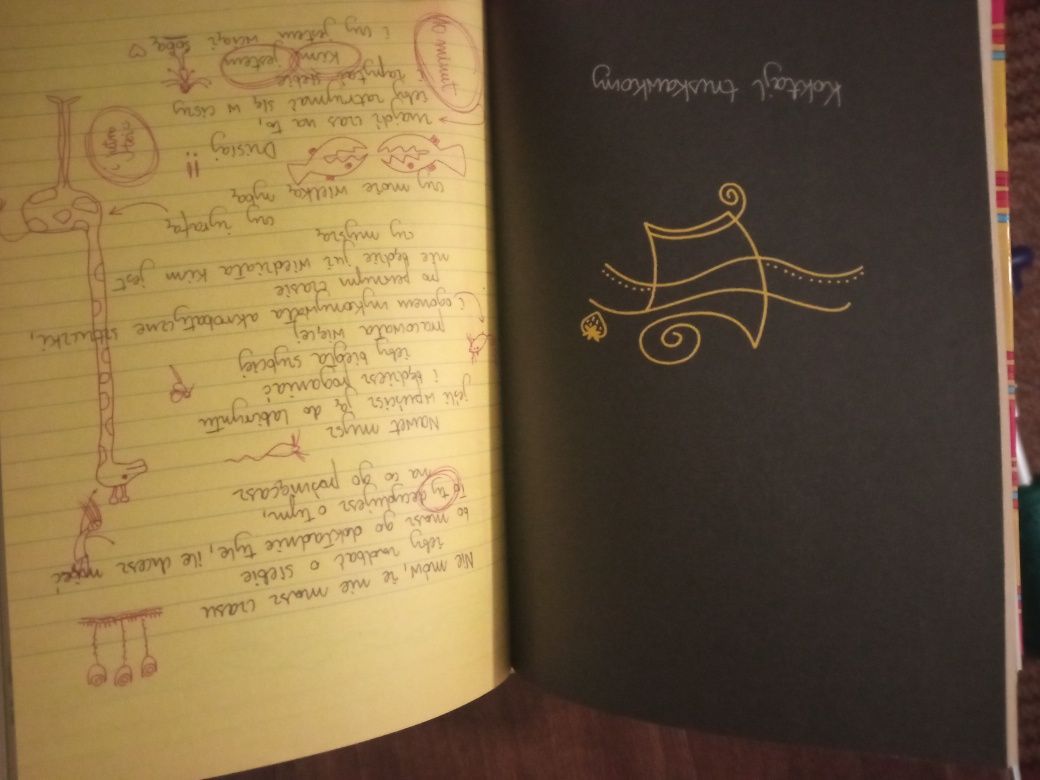 Nie mów, że nie masz czasu
żeby zadbać o siebie
bo masz go dokładnie tyle, ile chcesz mieć
To ty decydujesz o tym,
na co go poświęcasz
Nawet mysz
jeśli wpuścisz ją do labiryntu
i będziesz poganiać
żeby biegła szybciej
pracowała więcej
i ogonem wykonywała akrobatyczne sztuczki,
po pewnym czasie
nie będzie już wiedziała kim jest
czy myszą
czy żyrafą
czy może wielką rybą
Dzisiaj
znajdź czas na to,
żeby zatrzymać się w ciszy
i zapytać siebie
kim jestem
i czy jestem wciąż sobą
10 minut
Koktajl truskawkowy